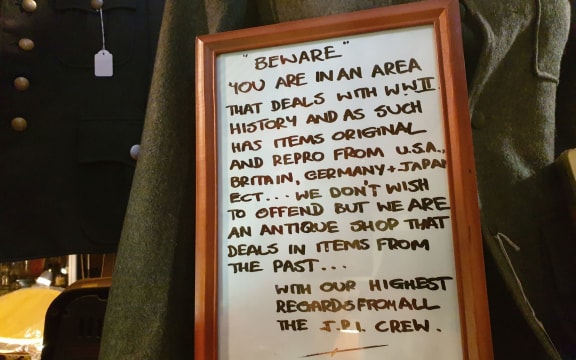 "BEWARE"
YOU ARE IN AN AREA
THAT DEALS WITH WWII
HISTORY AND AS SUCH
HAS ITEMS ORIGINAL
AND REPRO FROM U.S.A.,
BRITAIN, GERMANY + JAPAN
ECT... WE DON'T WISH
TO OFFEND BUT WE ARE
AN ANTIQUE SHOP THAT
DEALS IN ITEMS FROM
THE PAST...
WITH OUR HIGHEST
REGARDS FROM ALL
THE J.P.I. CREW.